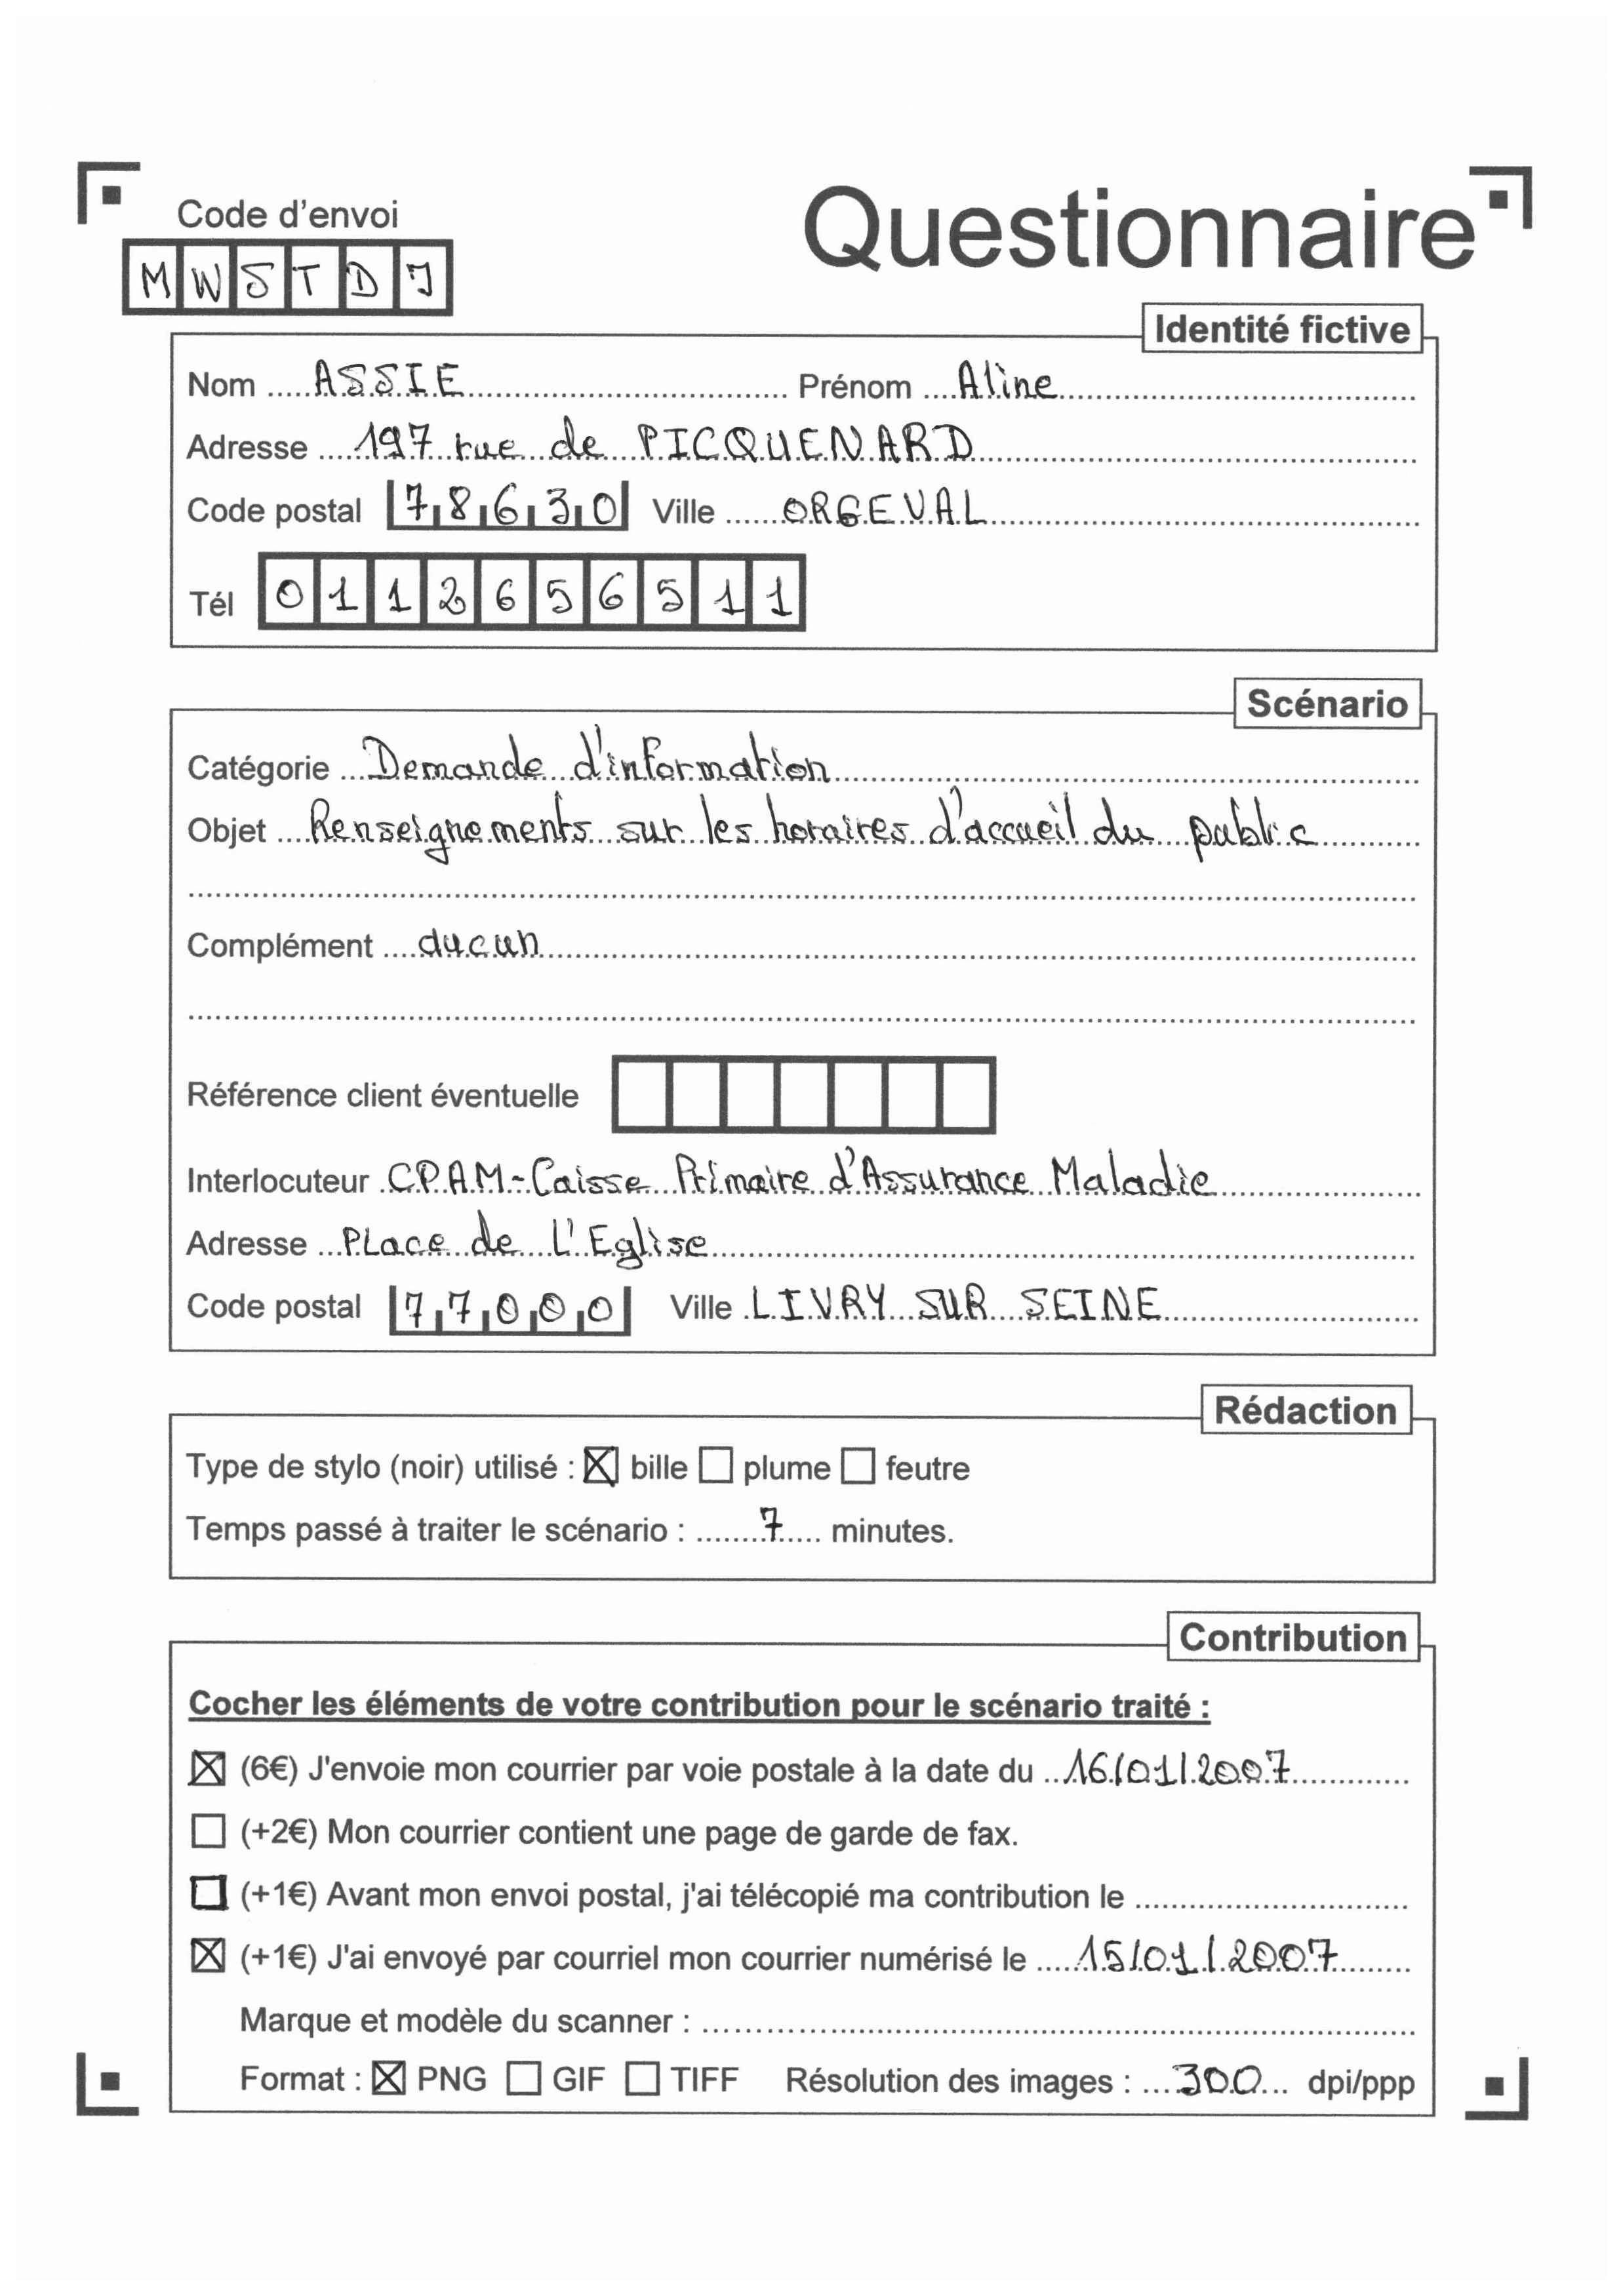 Code d'envoi
Questionnaire
MWSTDJ
Identité fictive
Nom ASSIE Prénom Aline
Adresse 197 rue de PICQUENARD
Code postal 78630 Ville ORGEVAL
Tél 0112656511
Scénario
Catégorie Demande d'information
Objet Renseignements sur les horaires d'accueil du public
Complément aucun
Référence client éventuelle
Interlocuteur CPAM-Caisse Primaire d'Assurance Maladie
Adresse PLace de L'Eglise
Code postal 77000 Ville LIVRY SUR SEINE
Rédaction
Type de stylo (noir) utilisé : ☒ bille ☐ plume ☐ feutre
Temps passé à traiter le scénario : 7 minutes.
Contribution
Cocher les éléments de votre contribution pour le scénario traité :
☒ (6€) J'envoie mon courrier par voie postale à la date du 16/01/2007
☐ (+2€) Mon courrier contient une page de garde de fax.
☐ (+1€) Avant mon envoi postal, j'ai télécopié ma contribution le
☒ (+1€) J'ai envoyé par courriel mon courrier numérisé le 15/01/2007
Marque et modèle du scanner :
Format : ☒ PNG ☐ GIF ☐ TIFF Résolution des images : 300 dpi/ppp